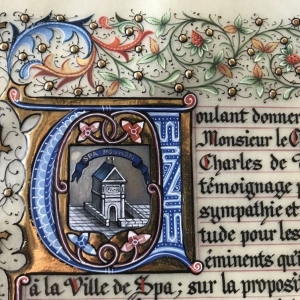 Voulant donner
Monsieur le
Charles de
témoignage
sympathie et
tude pour les
éminents qu'
SPA
à la Ville de Spa; sur la proposi